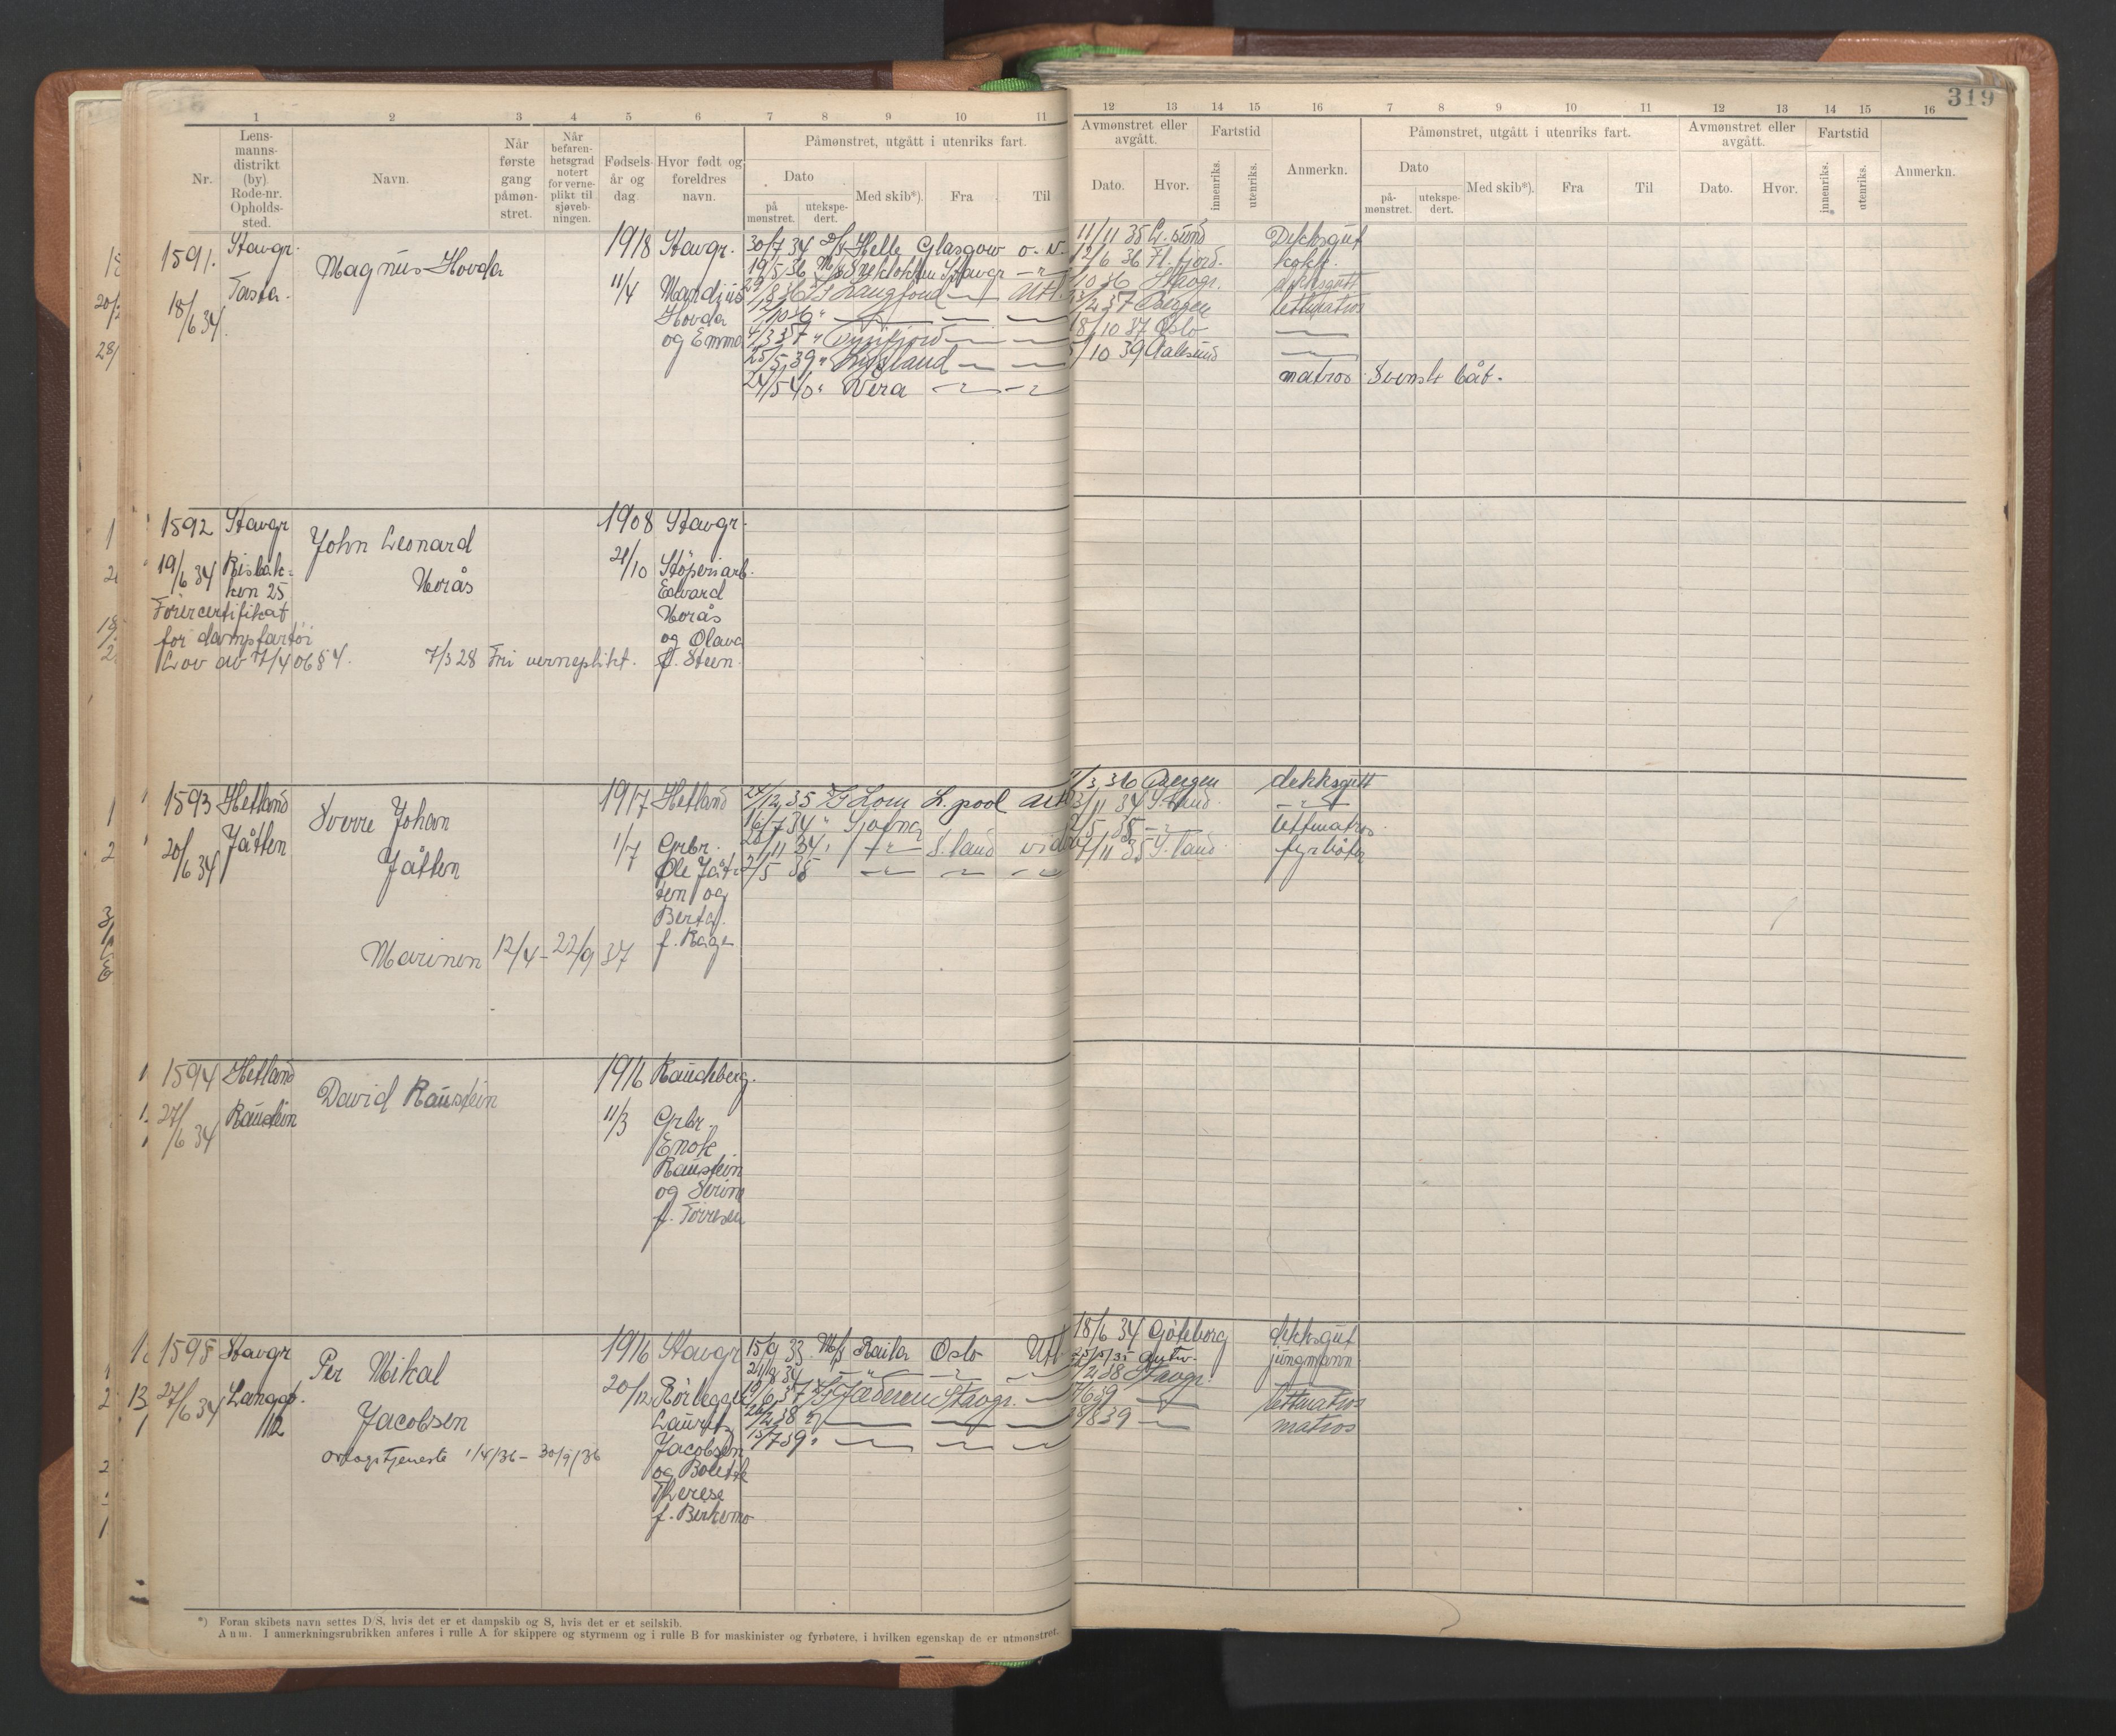 319
1 2 3 4 5 6 7 8 9 10 11 12 13 14 15 16 7 8 9 10 11 12 13 14 15 16
Nr.
Lens-
manns-
distrikt
(by)
Rode-nr.
Opholds-
sted.
Navn.
Når
første
gang
påmøn-
stret.
Når
befaren-
hetsgrad
notert
for verne-
plikt til
sjøveb-
ningen.
Fødsels-
år og
dag.
Hvor født og
foreldres
navn.
Påmønstret, utgått i utenriks fart.
Dato
på
mønstret.
utekspe-
dert.
Med skib*).
Fra
Til
Avmønstret eller
avgått.
Dato.
Hvor.
Fartstid
innenriks.
utenriks.
Anmerkn.
Påmønstret, utgått i utenriks fart.
Dato
på-
mønstret.
utekspe-
dert.
Med skib*).
Fra
Til
Avmønstret eller
avgått.
Dato.
Hvor.
Fartstid
innenriks.
utenriks.
Anmerkn.
1591. Stavgr. Magnus Hovda 1918 Stavgr.
Tasta.
18/6 34.
11/4 Mandjus
Hovda
og Emma
30/7 34 D/S Helle Glasgow o. v. 11/11 35 Dekksgut
19/5 36 M/S Stavgr 12/6 36 Fl. fjord. kokk
D/S Langfond Utl. 10 36 Stavgr. dekksgutt
37 Bergen lettmatros
4/3 37 " 18/10 37 Oslo
25/5 39 " /10 39 Aalesund
24/5 40 " Vera matros Svensk båt.
1592 Stavgr John Leonard 1908 Stavgr.
Norås
19/6 34 Risbak-
ken 25
21/10 Støperiarb.
Edvard
Norås
og Olava
f. Steen.
Førercertifikat
for dampfartøi
Lov av 7/4 06 § 4. 7/3 28 Fri verneplikt.
1593 Hetland Sverre Johan 1917 Hetland
Jåtten
20/6 34 Jåtten
1/7 Grbr.
Ole Jåt-
ten og
Berta
f. Rage
24/12 35 D/S Lom L. pool Utl. /3 36 Bergen dekksgutt
16/7 34 " /11 34
20/11 34 " S. land /5 35 lettmatros
2/5 35 /11 35 S. land fyrbøter
Marinen 12/4 - 22/9 37
1594 Hetland David Raustein 1916 Raudeberg.
27/6 34 Raustein
11/3 Grbr.
Enok
Raustein
og Serine
f. Torresen
1595 Stavgr Per Mikal 1916 Stavgr
Jacobsen
27/6 34 Langg.
112
20/12 Rørlegger
Lauritz
Jacobsen
og Boletk
Therese
f. Birkemo
15/9 33 M/S Raila Oslo Utl. 18/6 34 Göteborg dekksgut
25/5 35 Antw. jungmann
37 D/S Jæderen Stavgr. /2 38 Stavgr.
26/2 38 " /6 39 lettmatros
15/7 39 " /8 39 matros
Ovlogstjeneste 1/4/36 - 30/9/36
*) Foran skibets navn settes D/S, hvis det er et dampskib og S, hvis det er et seilskib.
Anm. I anmerkningsrubrikken anføres i rulle A for skippere og styrmenn og i rulle B for maskinister og fyrbøtere, i hvilken egenskap de er utmønstret.